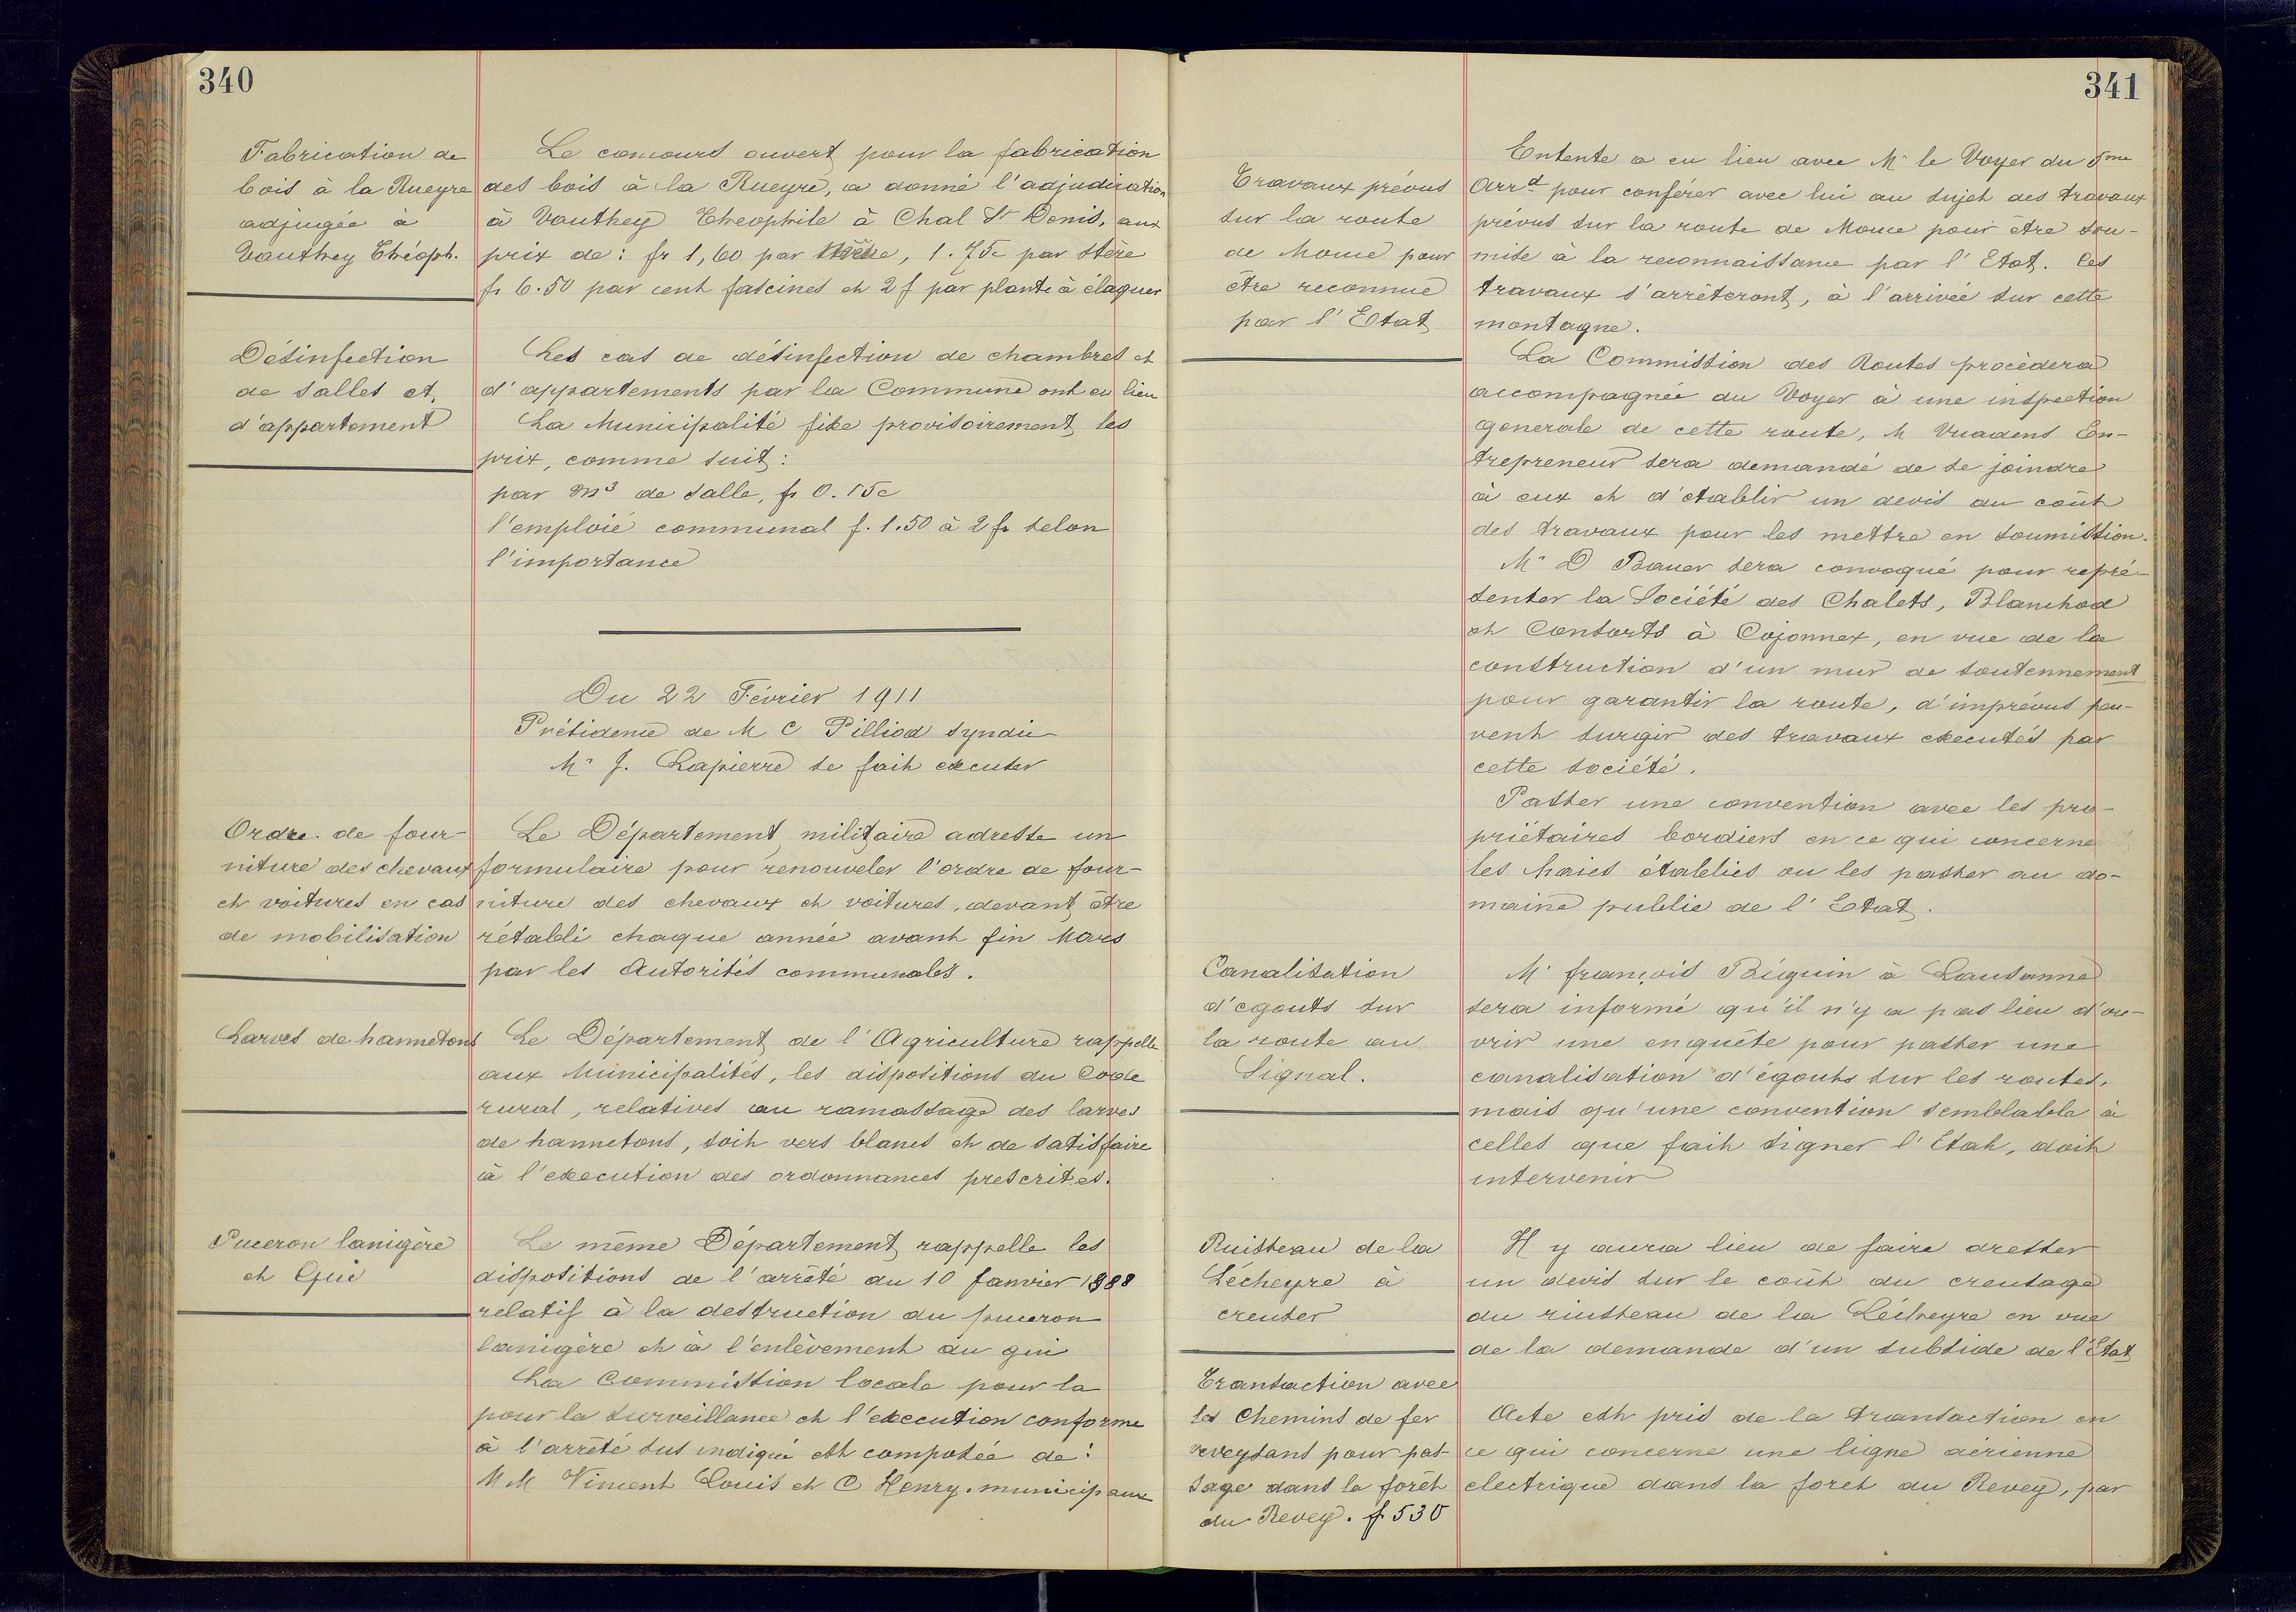 340
Fabrication de
bois à la Rueyre
adjugée à
Vauthey Théoph.
Le concours ouvert pour la fabrication
des bois à la Rueyre, a donné l'adjudication
à Vauthey Théophile à Chal St Denis, aux
prix de : fr 1,60 par , 1.75c par stère
fr 6.50 par cent fascines et 2 f par plante à élaguer
Désinfection
de salles et
d'appartement
Les cas de désinfection de chambres et
d'appartements par la Commune ont eu lieu
La Municipalité fixe provisoirement les
prix, comme suit :
par m3 de salle, fr 0.15c
l'emploié communal f. 1.50 à 2 fr selon
l'importance
Du 22 Février 1911
Présidence de M C Pilliod syndic
Mr J. Lapierre se fait excuser
Ordre de four-
niture des chevaux
et voitures en cas
de mobilisation
Le Département militaire adresse un
formulaire pour renouveler l'ordre de four-
niture des chevaux et voitures, devant être
rétabli chaque année avant fin Mars
par les Autorités communales.
Larves de hannetons
Le Département de l'Agriculture rappelle
aux Municipalités, les dispositions du Code
rural, relatives au ramassage des larves
de hannetons, soit vers blancs et de satisfaire
à l'execution des ordonnances prescrites.
Puceron lanigère
et Gui
Le même Département rappelle les
dispositions de l'arrêté du 10 Janvier 1888
relatif à la destruction du puceron
lanigère et à l'enlèvement du gui
La Commission locale pour la
pour la surveillance et l'execution conforme
à l'arrêté sus indiqué est composée de :
MM Vincent Louis et C Henry. municipaux
341
Travaux prévus
sur la route
de Mouce pour
être reconnue
par l'Etat
Entente a eu lieu avec Mr le Voyer du 5me
Arrd pour conférer avec lui au sujet des travaux
prévus sur la route de Mouce pour être sou-
mise à la reconnaissance par l'Etat. Ces
travaux s'arrêteront, à l'arrivée sur cette
montagne.
La Commission des Routes procèdera
accompagnée du Voyer à une inspection
generale de cette route, M Vuadens En-
trepreneur sera demandé de se joindre
à eux et d'etablir un devis du coût
des travaux pour les mettre en soumission.
Mr D Bauer sera convoqué pour repré-
senter la Société des Chalets, Blanchod
et Consorts à Cojonnex, en vue de la
construction d'un mur de soutennement
pour garantir la route, d'imprévus peu-
vent surgir des travaux executés par
cette société.
Passer une convention avec les pro-
priétaires bordiers en ce qui concerne
les haies établies ou les passer au do-
maine public de l'Etat.
Canalisation
d'egouts sur
la route au
Signal.
Mr françois Béguin à Lausanne
sera informé qu'il n'y a pas lieu d'ou-
vrir une enquête pour passer une
canalisation d'égouts sur les routes,
mais qu'une convention semblable à
celles que fait signer l'Etat, doit
intervenir
Ruisseau de la
Lécheyre à
creuser
Il y aura lieu de faire dresser
un devis sur le coût du creusage
du ruisseau de la Lécheyre en vue
de la demande d'un subside de l'Etat
Transaction avec
les Chemins de fer
veveysans pour pas-
sage dans la forêt
du Revey. fr 530
Acte est pris de la transaction en
ce qui concerne une ligne aérienne
electrique dans la foret du Revey, par